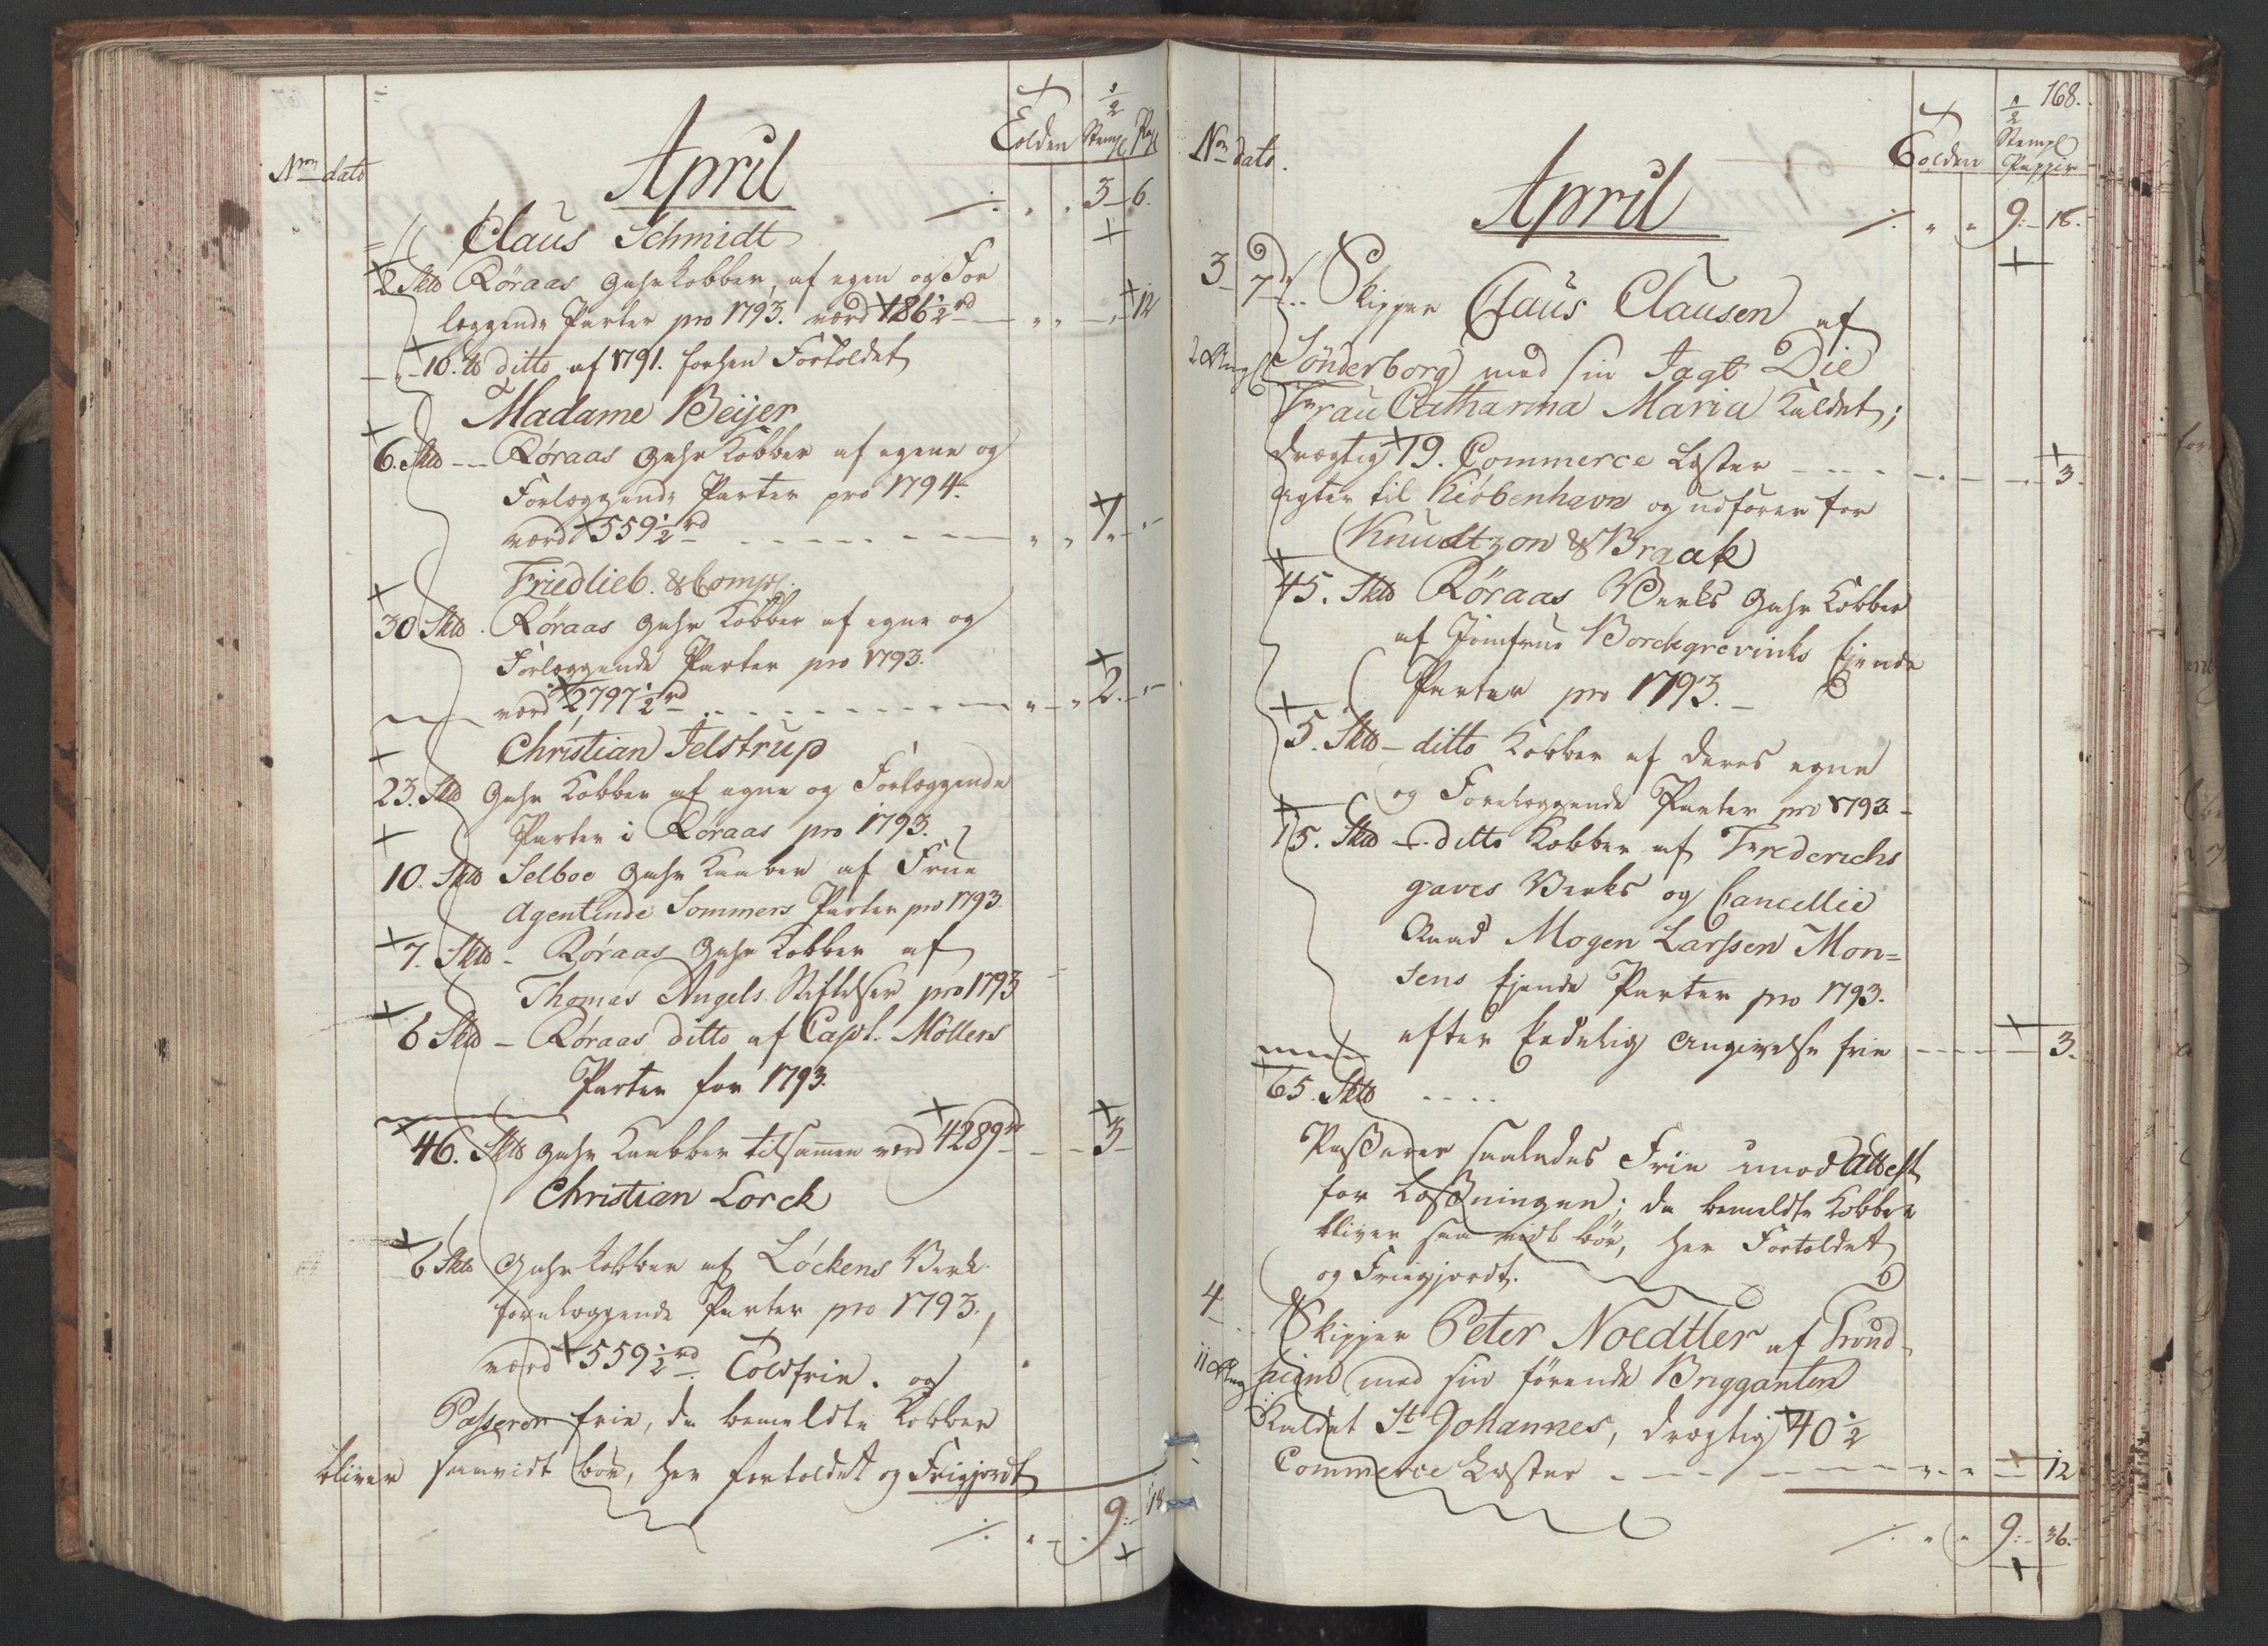 Tolden ½ Stempl Pap
Nrm dato
April
./. „ „ 3 – 6.
Claus Schmidt
2 Sktt Røraas Gahrkobber, af egen og For
leggende Parter pro 1793. værd 186½ rd – „ „ – 12
– „ – 10. tt ditto af 1791. forhen Fortoldet
Madame Beijer
6. Sktt – – Røraas Gahr Kobber af egene og
Forleggende Parter pro 1794.
værd 559½ rd – – – „ „ 1. „ –
Friedlieb & Comp.
30 Sktt. Røraas Gahr Kobber af egne og
Forleggende Parter pro 1793.
værd 2797½ rd – – – „ – „ 2. – „ –
Christian Jelstrup
23. Sktt Gahr Kobber af egne og Forleggende
Parter i Røraas pro 1793.
10. Sktt Selboe Gahr Kaaber af Frue
Agentinde Sommers Parter pro 1793.
7. Sktt – Røraas Gahr Kobber af
Thomas Angels Stiftelser pro 1793
6 Sktt – Røraas ditto af Capt. Möllers
Parter for 1793.
46. Sktt Gahr Kaabber tilsamen værd 4289 rd – – 3 –
Christian Lorck
6 Sktt Gahr Kobber af Løckens Verk
foreleggende Parter pro 1793.
værd 559½ rd. Toldfrie. og
Passerer frie, da bemeldte Kobber
bliver saavidt bør, her fortoldet og Frigjordt
./. „ – „ 9: – 18
168.
Tolden ½ Stempl Pappir
Nm dato.
April
./. „ „ 9: – 18.
3 7de Skipper Claus Clausen af
Sønderborg med sin Jagt Die
Frau Catharina Maria kaldet;
drægtig 19. Commerce Læster – – – 3.
agter til Kiøbenhavn og udfører for
Knudtzon & Braak
45. Sktt Røraas Verks Gahr Kobber
af Jomfrue Borchgrevinks Ejende
Parter pro 1793. –
5. Sktt – ditto Kobber af deres egne
og Foreleggende Parter pro 1793 –
15. Sktt – ditto Kobber af Frederichs
gaves Verks og Cancellie
Raad Mogen Larssen Mon=
sens Ejende Parter pro 1793.
efter Eedelig Angivelse frie – – – 3.
65. Sktt – – – –
Passerer saaledes Frie imod Attest
for Losningen; da bemeldte Kobber
bliver saa vidt bør, her Fortoldet
og Friegjordt.
4 – Skipper Peter Noedtler af Trond
hiem med sin førende Brigganten
Kaldet St. Johannes, drægtig 40½
Commerce Læster – – – „ – „ – 12
./. „ „ 9: – 36.